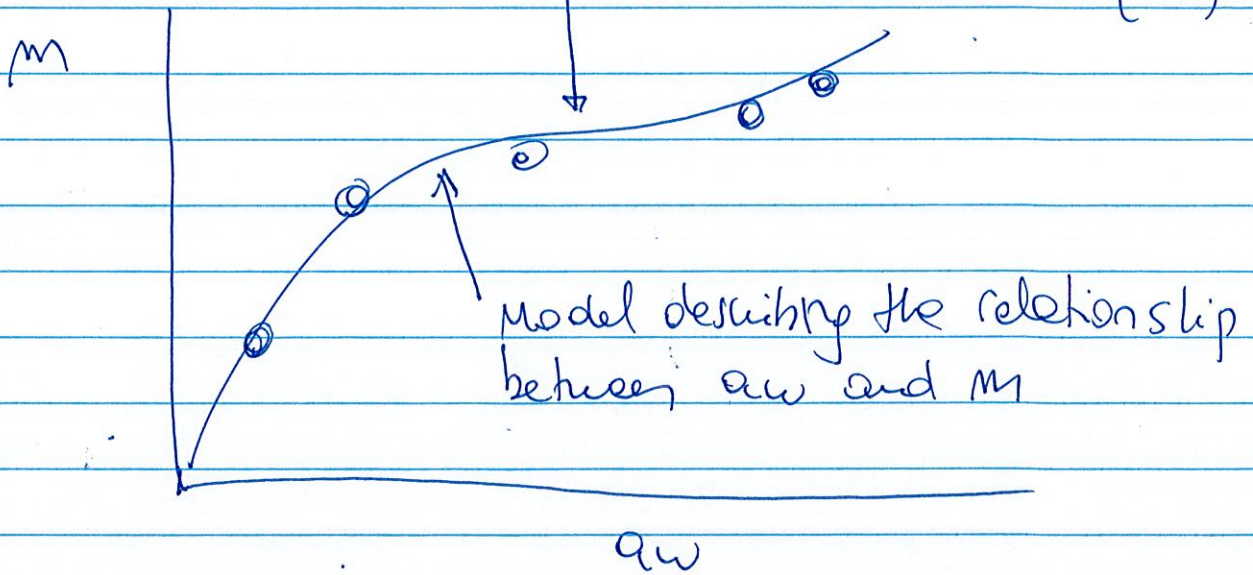 m
Model describing the relationship
between aw and m
aw